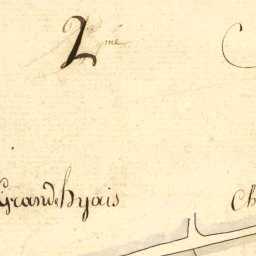 2.me
Grand hyais
Ch